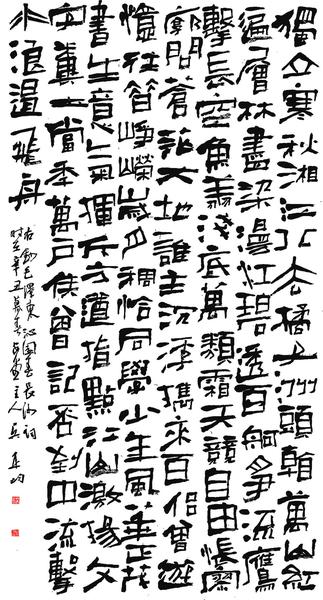 獨立寒秋湘江北去橘子洲頭看萬山紅
遍層林盡染漫江碧透百舸爭流鷹
擊長空魚翔淺底萬類霜天競自由悵寥
廓問蒼茫大地誰主沉浮攜來百侶曾遊
憶往昔崢嶸歲月稠恰同學少年風華正茂
書生意氣揮斥方遒指點江山激揚文
字糞土當年萬戶侯曾記否到中流擊
水浪遏飛舟
右錄毛澤東沁園春長沙詞
時在辛丑暮春主人